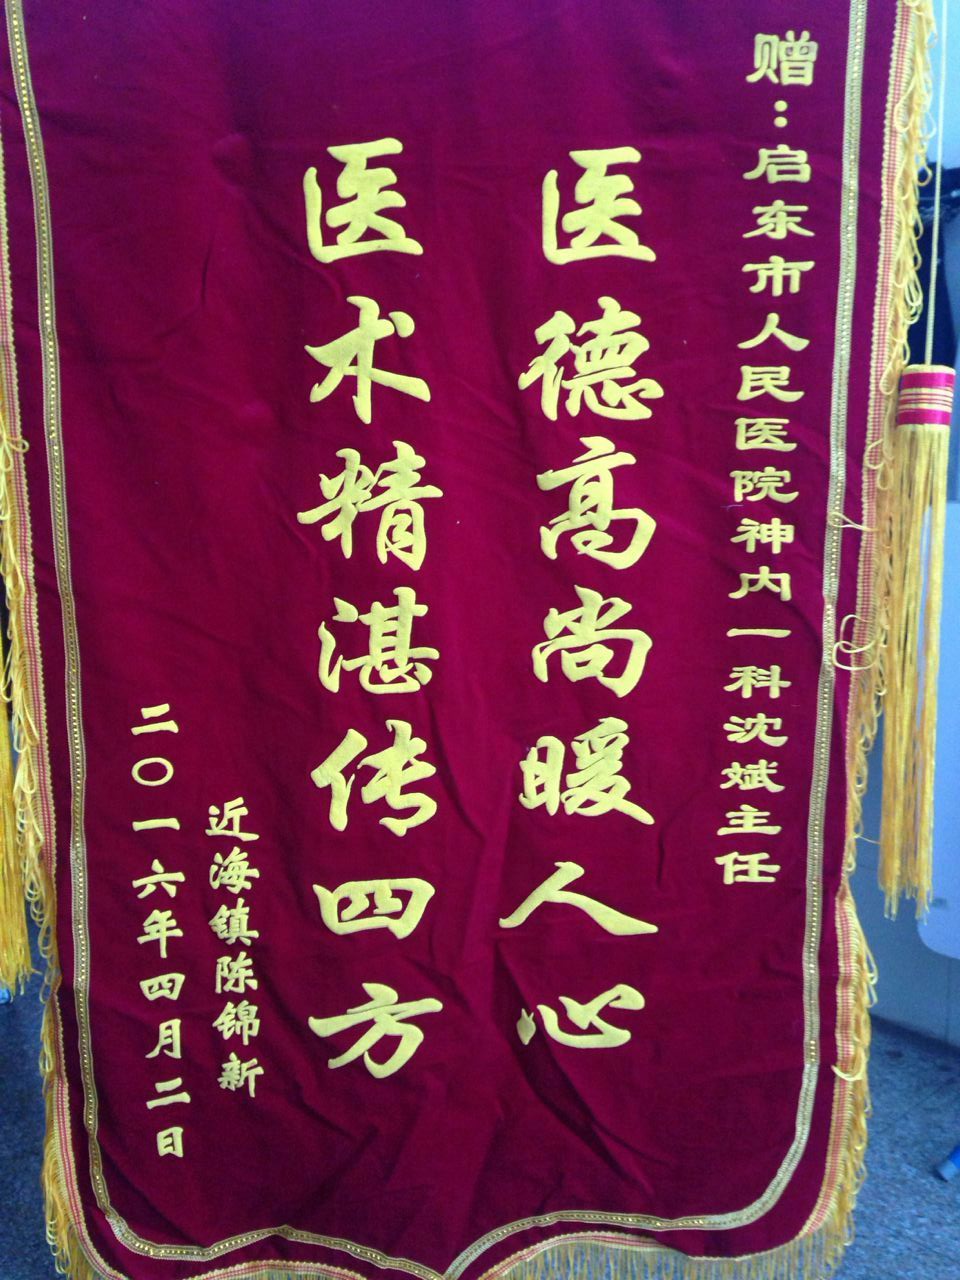 赠：启东市人民医院神内一科沈斌主任
医德高尚暖人心
医术精湛传四方
近海镇陈锦新
二〇一六年四月二日